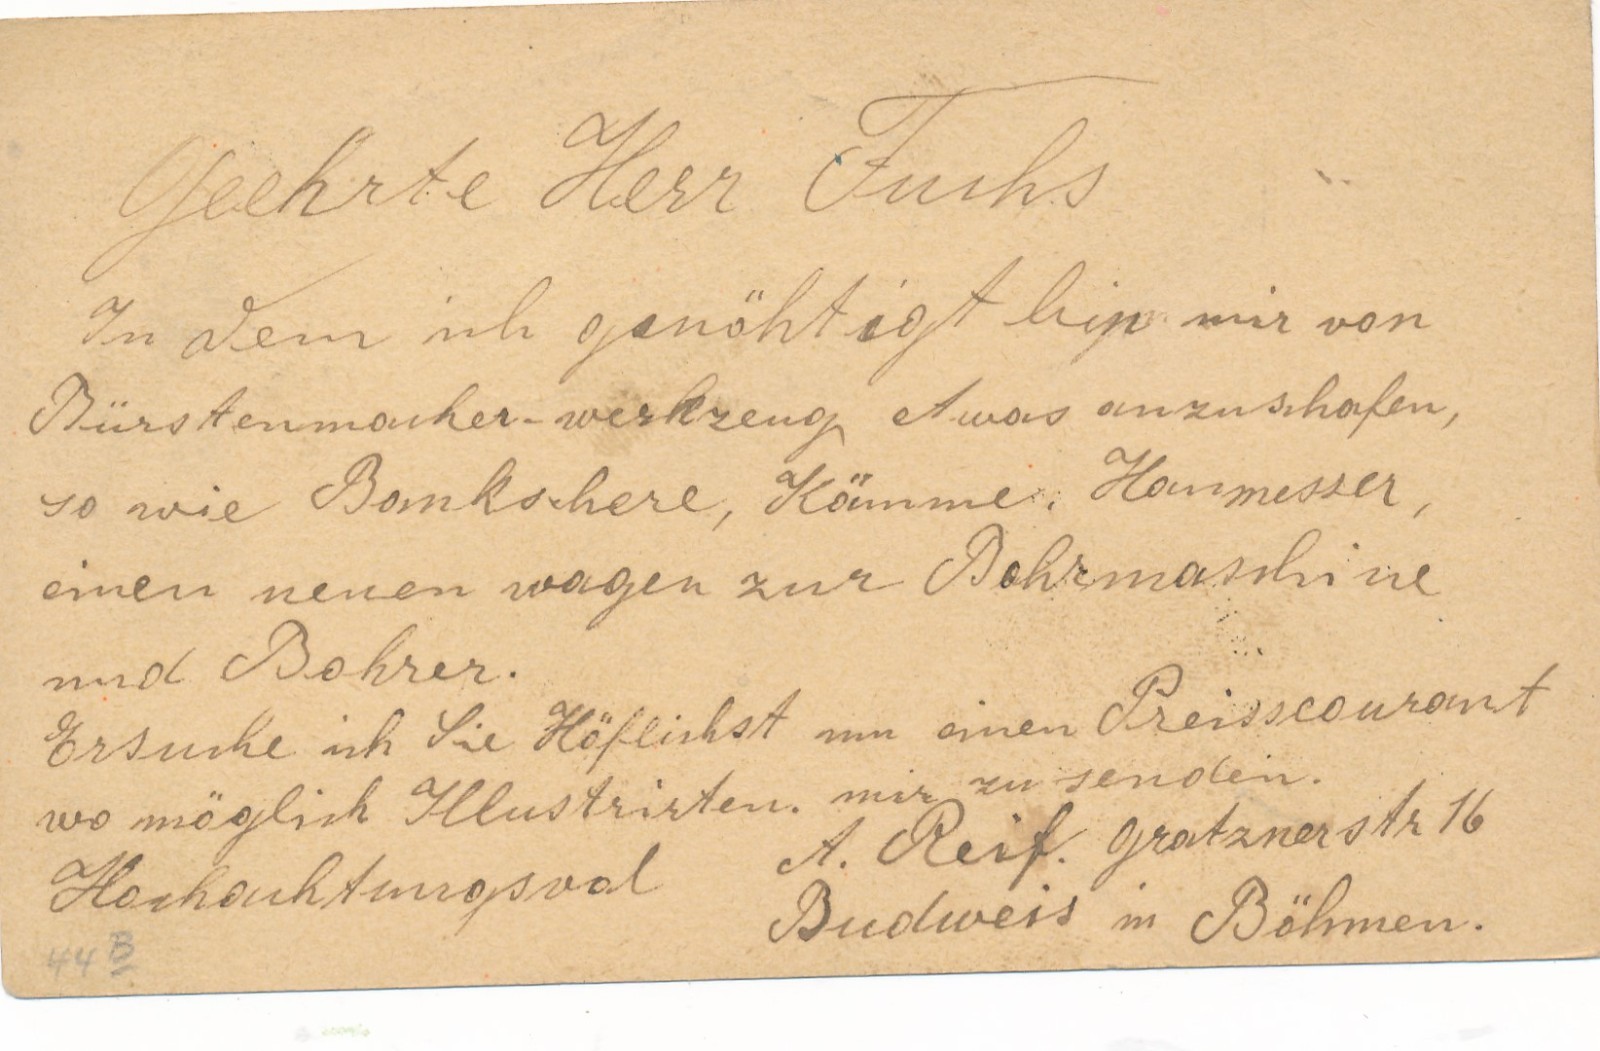 Geehrte Herr Fuchs
In dem ich genöhtigt bin mir von
Bürstenmacher-werkzeug etwas anzuschafen,
so wie Bankschere, Kämme, Haumesser,
einen neuen wagen zur Bohrmaschine
und Bohrer.
Ersuche ich Sie Höflichst um einen Preisscourant
wo möglich Illustrirten. mir zu senden.
A. Reif. Gratznerstr 16
Hochachtungsvol
Budweis in Böhmen.
44 B